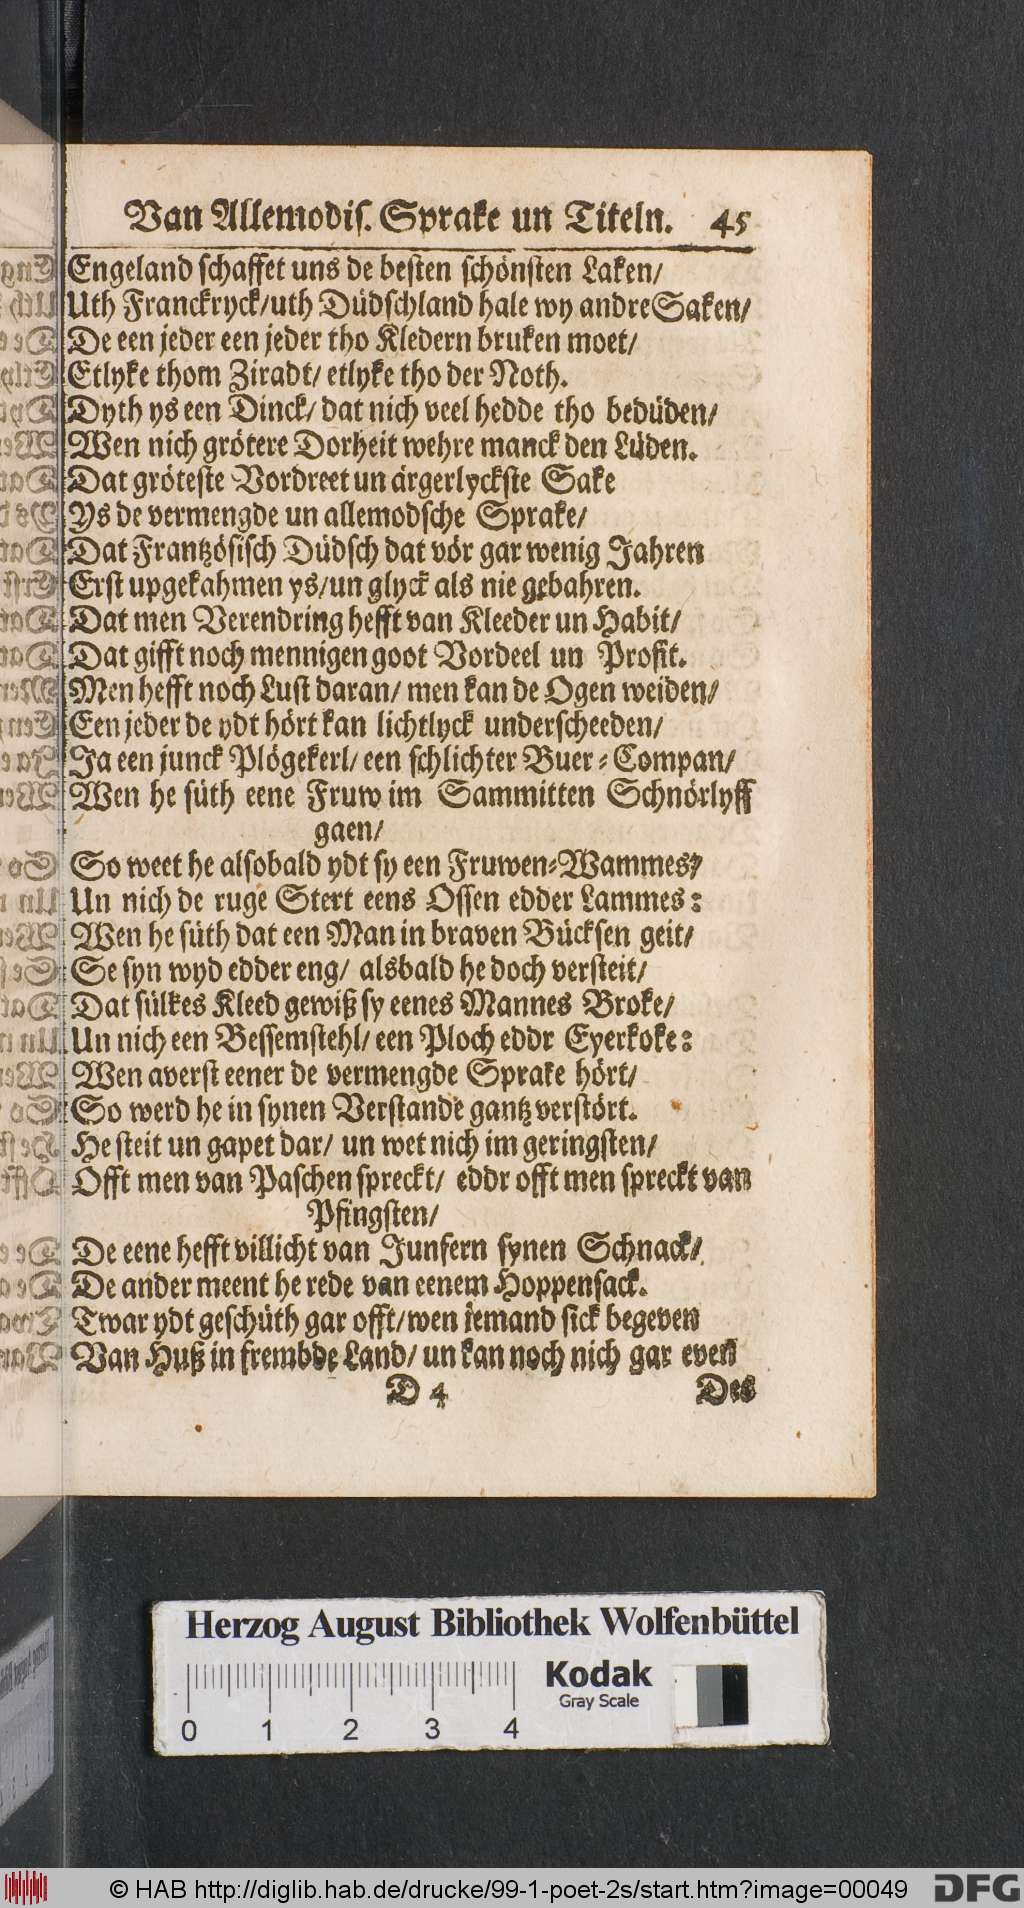 Van Allemodiſ. Sprake un Titeln. 45
Engeland ſchaffet uns de beſten ſchönſten Laken/
Uth Franckryck/uth Düdſchland hale wy andre Saken/
De een jeder een jeder tho Kledern bruken moet/
Etlyke thom Ziradt/ etlyke tho der Noth.
Dyth ys een Dinck/ dat nich veel hedde tho bedüden/
Wen nich grötere Dorheit wehre manck den Lüden.
Dat gröteſte Vordreet un ärgerlyckſte Sake
Ys de vermengde un allemodſche Sprake/
Dat Frantzöſiſch Düdſch dat vör gar wenig Jahren
Erſt upgekahmen ys/un glyck als nie gebahren.
Dat men Verendring hefft van Kleeder un Habit/
Dat gifft noch mennigen goot Vordeel un Profit.
Men hefft noch Luſt daran/ men kan de Ogen weiden/
Een jeder de ydt hört kan lichtlyck underſcheeden/
Ja een junck Plögekerl/ een ſchlichter Buer-Compan/
Wen he ſüth eene Fruw im Sammitten Schnörlyff
gaen/
So weet he alſobald ydt ſy een Fruwen-Wammes/
Un nich de ruge Stert eens Oſſen edder Lammes:
Wen he ſüth dat een Man in braven Bückſen geit/
Se ſyn wyd edder eng/ alsbald he doch verſteit/
Dat ſülkes Kleed gewiß ſy eenes Mannes Broke/
Un nich een Beſſemſtehl/ een Ploch eddr Eyerkoke:
Wen averſt eener de vermengde Sprake hört/
So werd he in ſynen Verſtande gantz verſtört.
He ſteit un gapet dar/ un wet nich im geringſten/
Offt men van Paſchen ſpreckt/ eddr offt men ſpreckt van
Pfingſten/
De eene hefft villicht van Junfern ſynen Schnack/
De ander meent he rede van eenem Hoppenſack.
Twar ydt geſchüth gar offt/wen jemand ſick begeven
Van Huß in frembde Land/ un kan noch nich gar even
D 4 Des
Herzog August Bibliothek Wolfenbüttel
Kodak
Gray Scale
0 1 2 3 4
© HAB http://diglib.hab.de/drucke/99-1-poet-2s/start.htm?image=00049
DFG